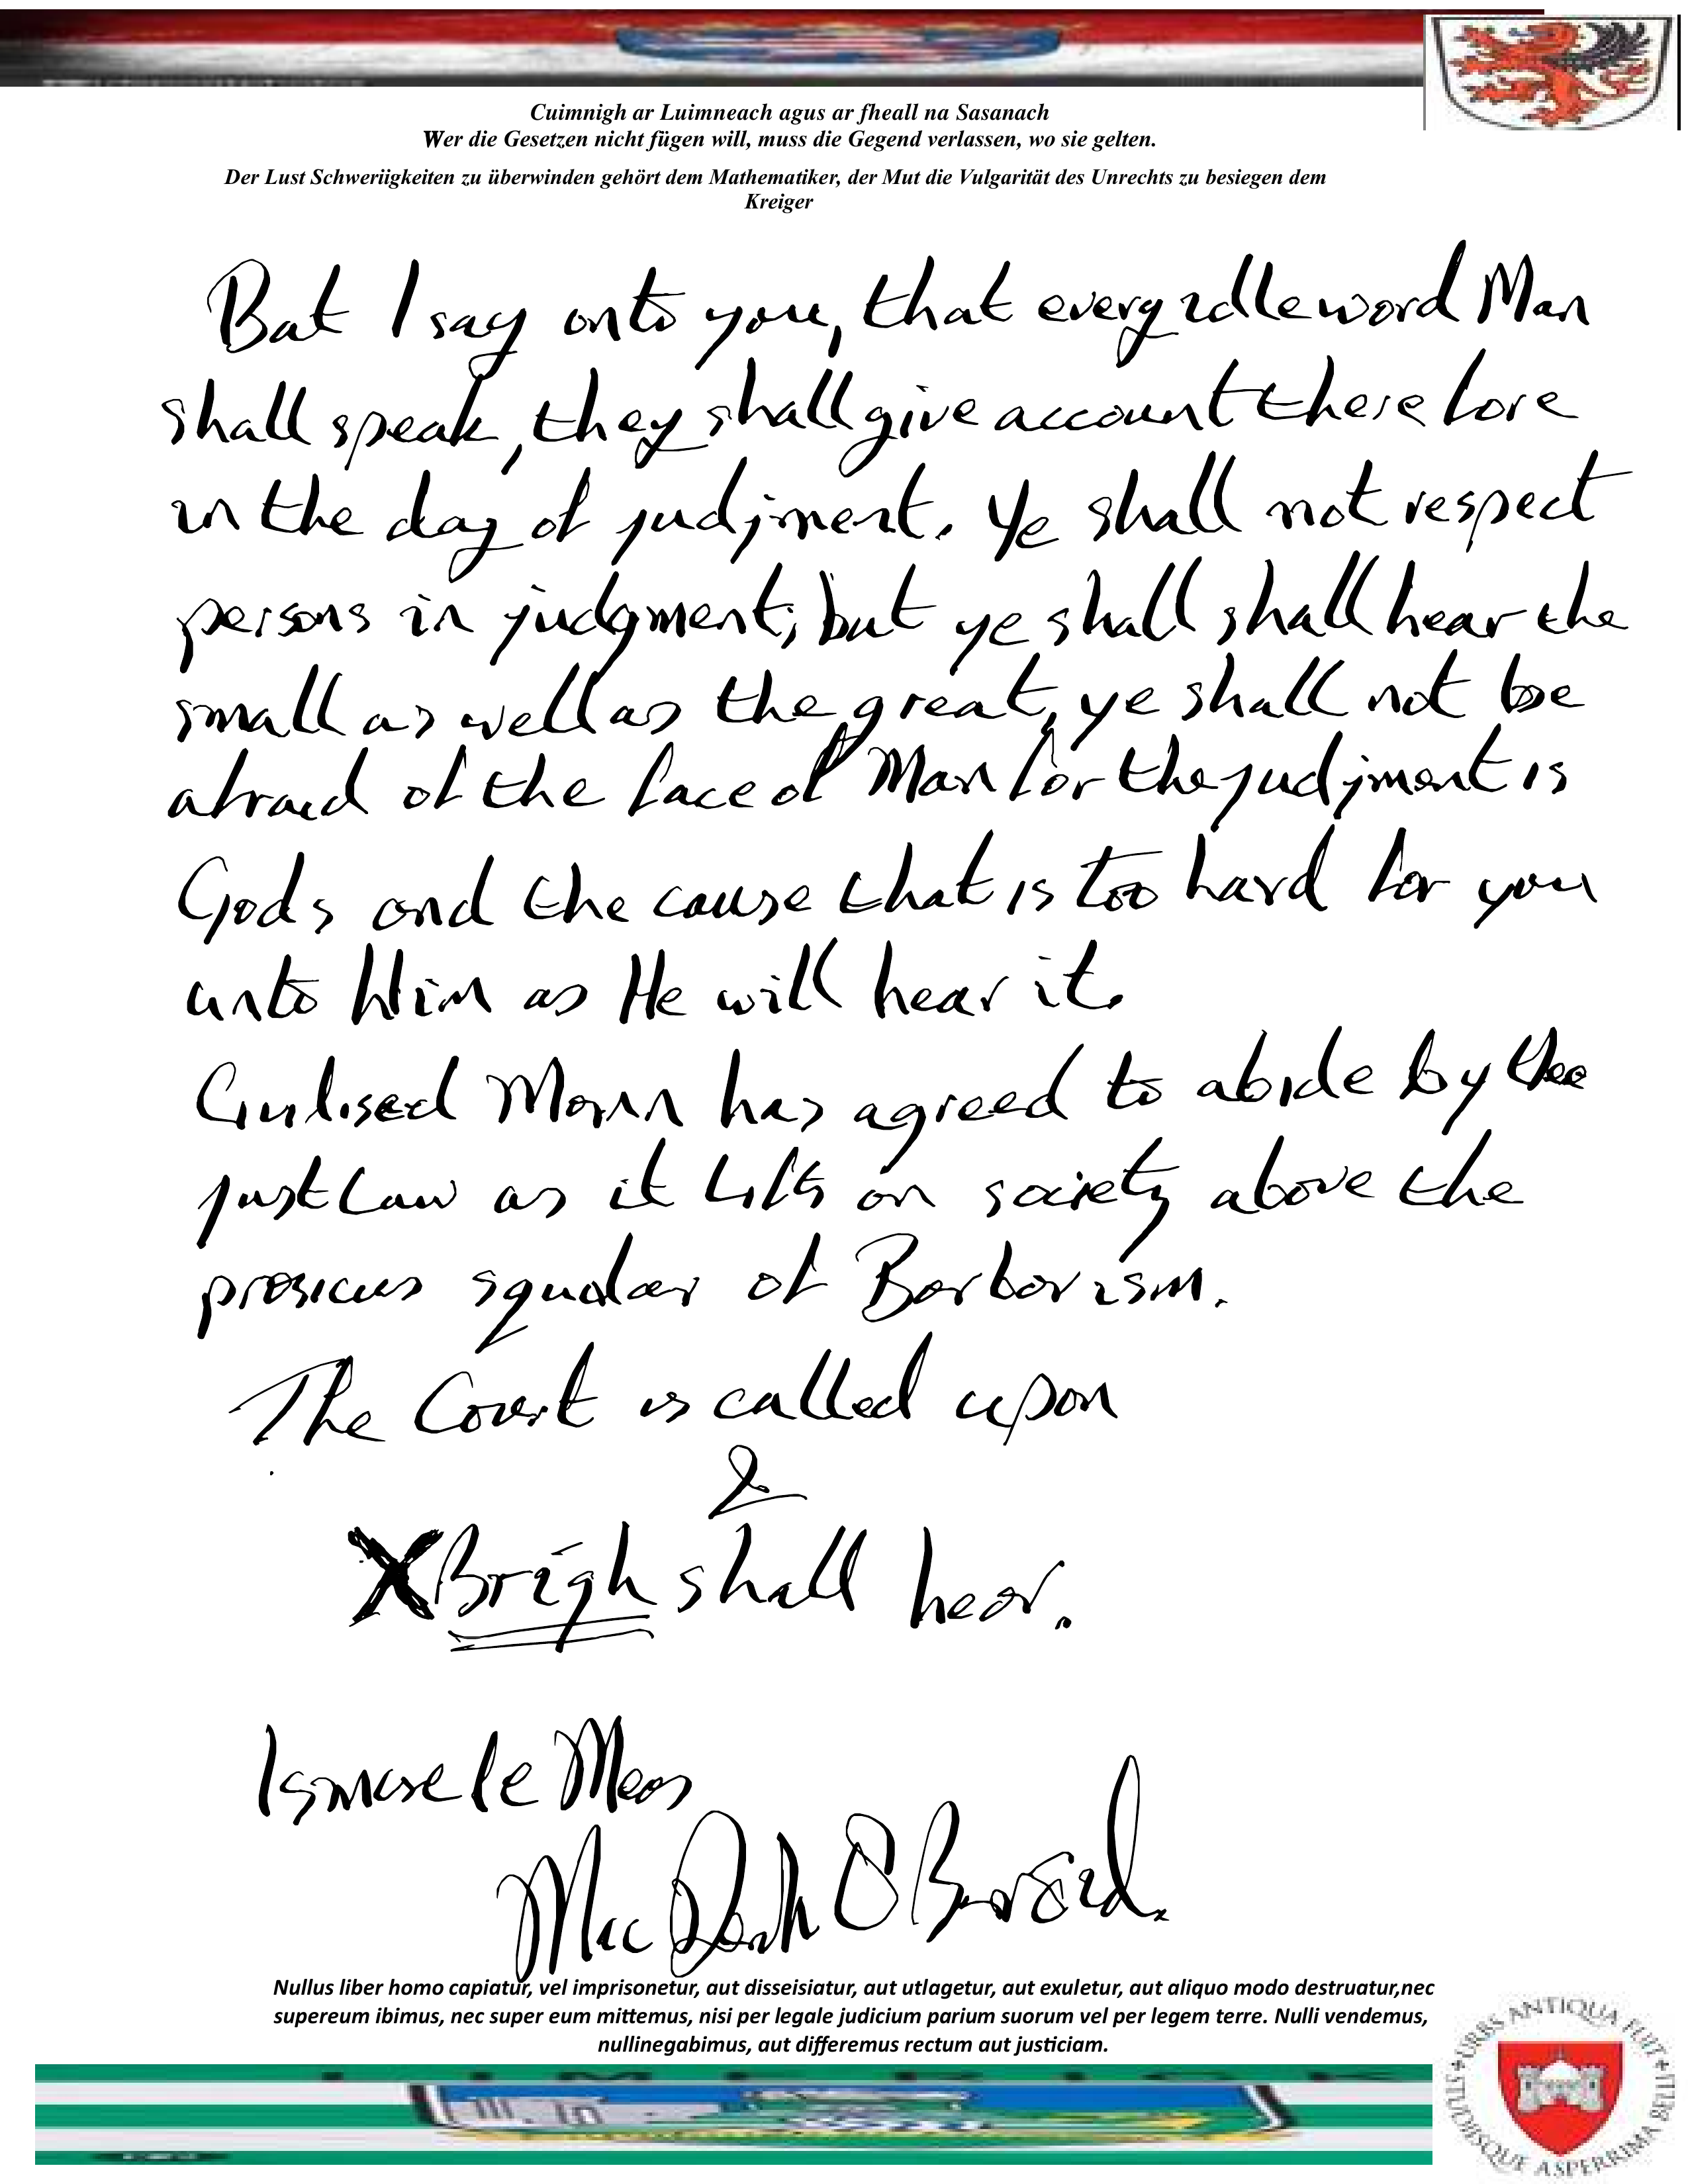 Cuimnigh ar Luimneach agus ar fheall na Sasanach
Wer die Gesetzen nicht fügen will, muss die Gegend verlassen, wo sie gelten.
Der Lust Schweriigkeiten zu überwinden gehört dem Mathematiker, der Mut die Vulgarität des Unrechts zu besiegen dem
Kreiger
But I say onto you, that every idle word Man
shall speak, they shall give account therefore
in the day of judjment. Ye shall not respect
persons in judgment; but ye shall shall hear the
small as well as the great, ye shall not be
afraid of the face of Man for the judjment is
Gods and the cause that is too hard for you
unto Him as He will hear it.
Civilised Mann has agreed to abide by the
just Law as it lifts on society above the
squalor of Barbarism.
The Court is called upon
&
X Brígh shall hear.
Is mise le Meas
Mac
Nullus liber homo capiatur, vel imprisonetur, aut disseisiatur, aut utlagetur, aut exuletur, aut aliquo modo destruatur,nec
supereum ibimus, nec super eum mittemus, nisi per legale judicium parium suorum vel per legem terre. Nulli vendemus,
nullinegabimus, aut differemus rectum aut justiciam.
URBS ANTIQUA FUIT STUDIISQUE ASPERRIMA BELLI